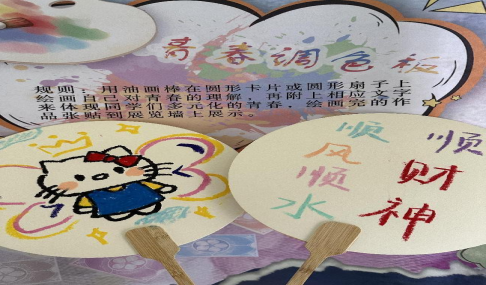 青春调色板
规则：用油画棒在圆形卡片或圆形扇子上
绘画自己对青春的理解，再附上相应文字
来体现同学们多元化的青春，绘画完的作
品张贴到展览墙上展示。
顺 顺
风 财
顺 神
水